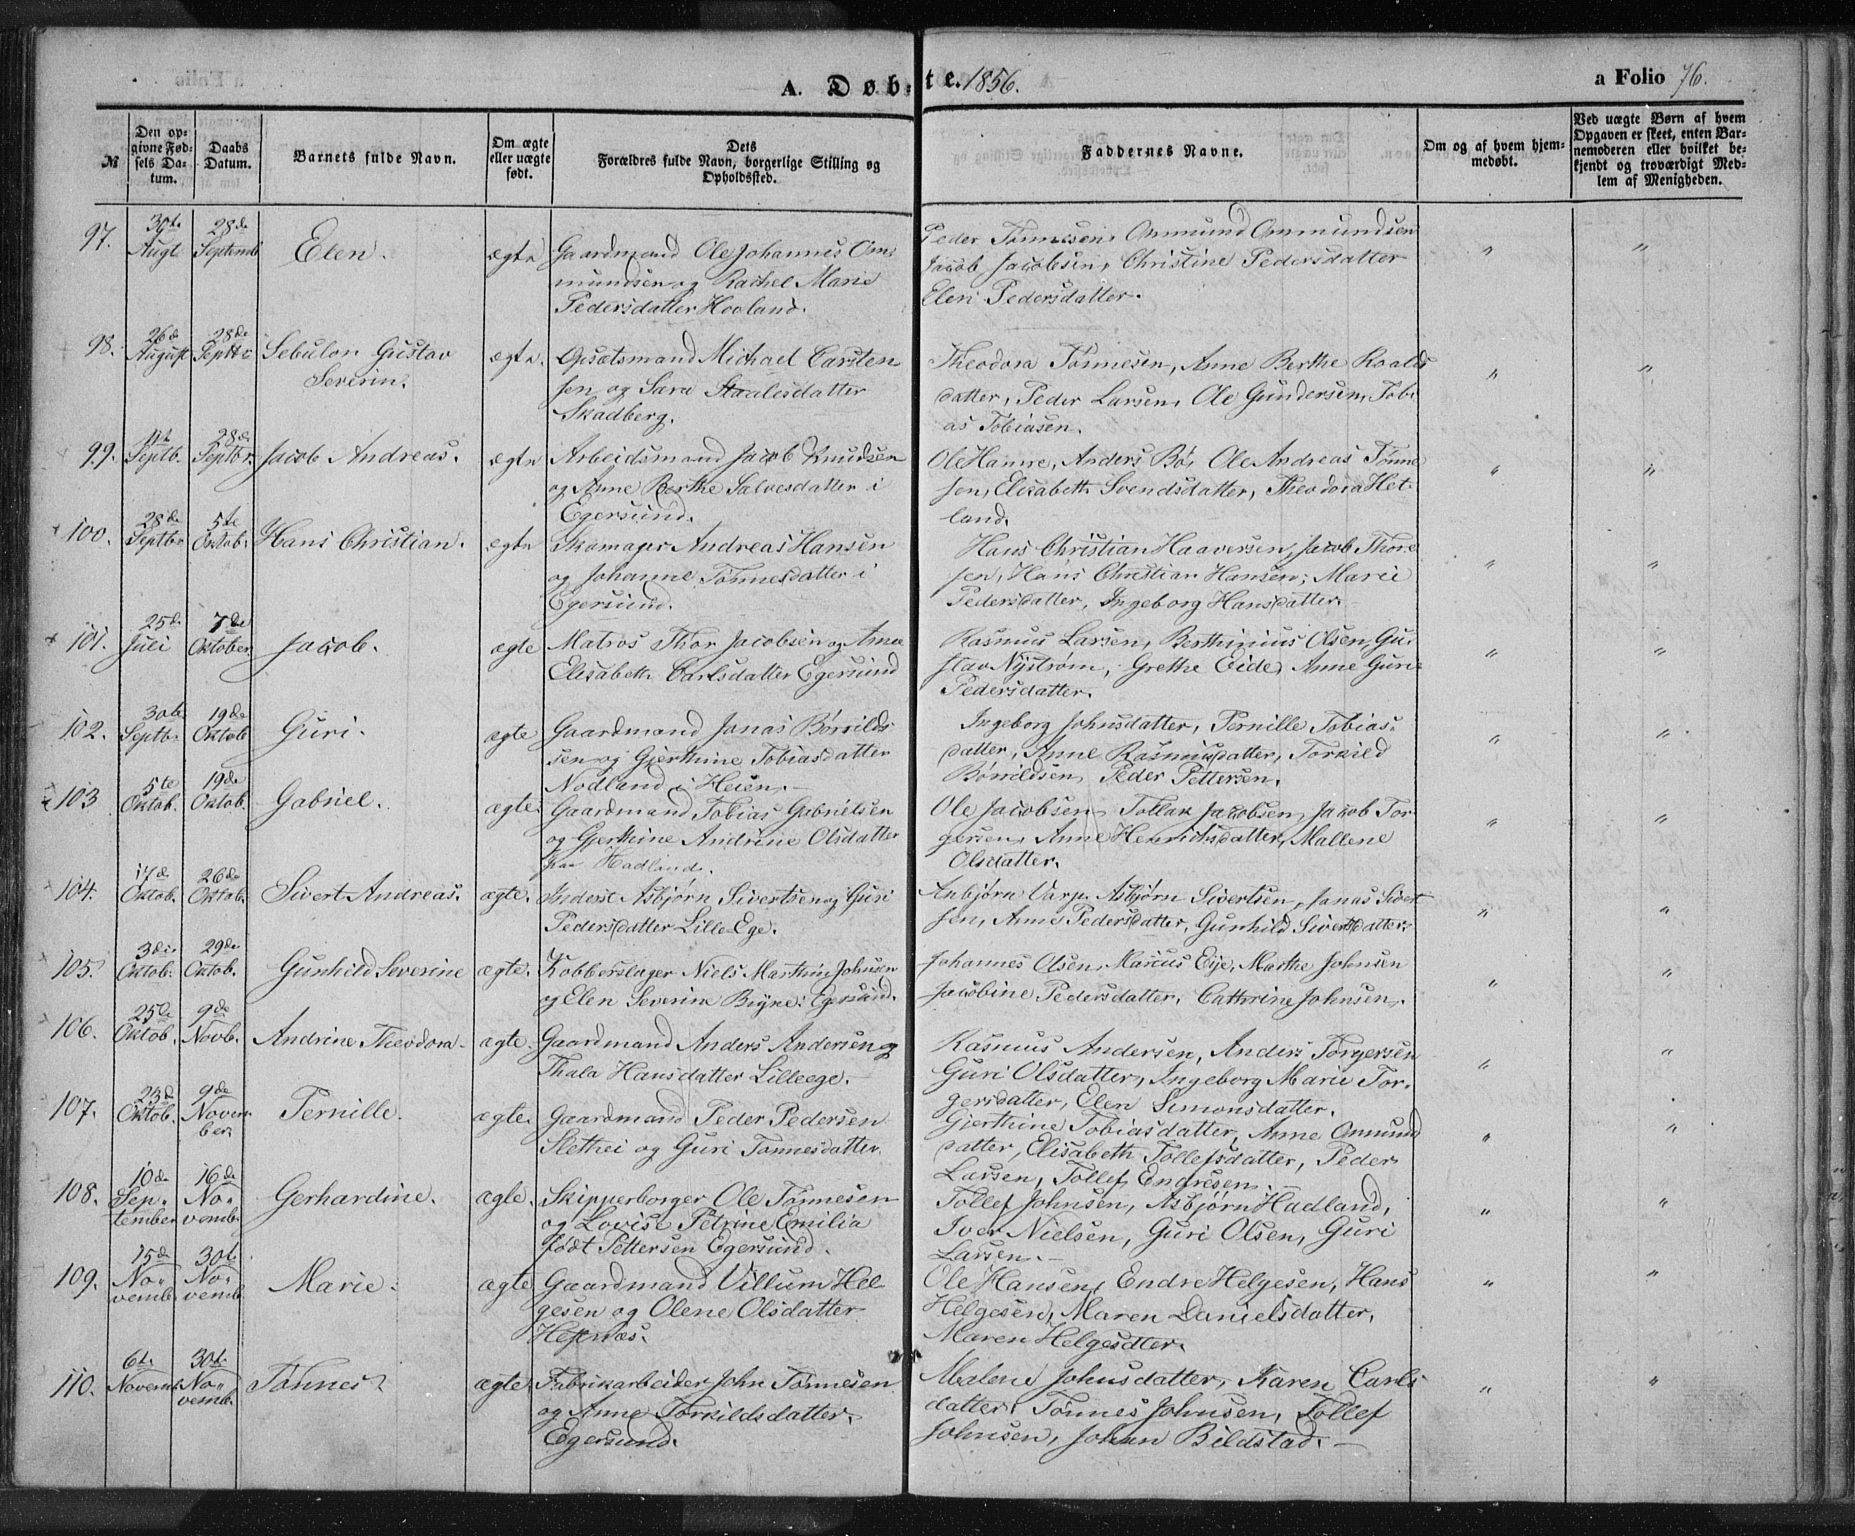 A. Døbte. 1856.
a Folio 76.
№
Den opgivne Fødsels Datum.
Daabs Datum.
Barnets fulde Navn.
Om ægte eller uægte født.
Dets Forældres fulde Navn, borgerlige Stilling og Opholdssted.
Faddernes Navne.
Om og af hvem hjemmedøbt.
Ved uægte Børn af hvem Opgaven er skeet, enten Barnemoderen eller hvilket bekjendt og troværdigt Medlem af Menigheden.
97. 30te Augt 28de Septemb Elen. ægte Gaardmand Ole Johannes Om-
mundsen og Rachel Marie
Pedersdatter Hovland.
Peder Tønnesen, Ommund Ommundsen
Jacob Jacobsen, Christine Pedersdatter
Elen Pedersdatter.
" "
98. 26de August 28de Septbr Sebulon Gustav
Severin.
ægte. Opsætsmand Michael Carsten
sen og Sara Staalesdatter
Skadberg.
Theodora Tønnesen, Anne Berthe Roalds
datter, Peder Larsen, Ole Gundersen, Tobi
as Tobiasen.
" "
99. 11te Septb. 28de Septbr. Jacob Andreas. ægte Arbeidsmand Jacob Knudsen
og Anne Berthe Salvesdatter i
Egersund.
Ole Hamre, Anders Bø, Ole Andreas Tønne
sen, Elisabeth Svendsdatter, Theodora Het-
land.
" "
100. 28de Septbr 5te Oktob. Hans Christian. ægte Skomager Andreas Hansen
og Johanne Tønnesdatter i
Egersund.
Hans Christian Haaversen, Jacob Thore
sen, Hans Christian Hansen, Marie
Pedersdatter, Ingeborg Hansdatter.
" "
101. 25de Juli 7de Oktober Jacob. ægte Matros Thor Jacobsen og Anne
Elisabeth Carlsdatter Egersund
Rasmus Larsen, Berthinius Olsen, Gu-
stav Nystrøm, Grethe Eide, Anne Guri
Pedersdatter.
" "
102. 30te Septb. 19de Oktob Guri. ægte Gaardmand Jonas Børrilds
sen og Gjerthine Tobiasdatter
Nodland i Heien.
Ingeborg Johnsdatter, Pernille Tobias-
datter, Anne Rasmusdatter, Torkild
Børrildsen, Peder Pettersen.
" "
103 5te Oktob. 19de Oktob. Gabriel. ægte. Gaardmand Tobias Gabrielsen
og Gjerthine Andrine Olsdatter
paa Hadland.
Ole Jacobsen, Tollak Jacobsen, Jacob Tor-
gersen, Anne Henrichsdatter, Mallene
Olsdatter.
" "
104. 17de Oktob. 26de Oktob. Sivert Andreas. ægte. Inderst Asbjørn Sivertsen og Guri
Pedersdatter Lille Ege.
Anbjørn Varp, Asbjørn Sivertsen, Jonas Sivert
sen, Anne Pedersdatter, Gunhild Sivertsdatter.
" "
105. 3die Oktob. 29de Oktob. Gunhild Severine ægte. Kobberslager Niels Marthin Johnsen
og Elen Severine Bryne i Egersund.
Johannes Olsen, Marcus Eije, Marthe Johnsen
Jacobine Pedersdatter, Cathrine Johnsen.
" "
106. 25de Oktob. 9de Novb. Andrine Theodora ægte. Gaardmand Anders Andersen og
Thala Hansdatter Lilleege.
Rasmus Andersen, Anders Torgersen
Guri Olsdatter, Ingeborg Marie Tor-
gersdatter, Elen Simonsdatter.
" "
107. 23de Oktob. 9de November Pernille. ægte. Gaardmand Peder Pedersen
Slethei og Guri Tønnesdatter.
Gjerthine Tobiasdatter, Anne Ommund
datter, Elisabeth Tollefsdatter, Peder
Larsen, Tollef Endresen.
" "
108. 10de September 16de Novemb. Gerhardine. ægte. Skipperborger Ole Tønnesen
og Lovise Petrine Emilia
født Pettersen Egersund.
Tollef Johnsen, Asbjørn Hadland,
Iver Nielsen, Guri Olsen, Guri
Larsen.
" "
109. 15de Novemb. 30te Novemb. Marie. ægte Gaardmand Villum Hel
gesen og Olene Olsdatter
Hegnæs.
Ole Hansen, Endre Helgesen, Hans
Helgesen, Maren Danielsdatter,
Maren Helgesdter.
" "
110. 6te Novemb. 30te Novemb. Tønnes ægte Fabrikarbeider John Tønnesen
og Anne Torkildsdatter
Egersund.
Malene Johnsdatter, Karen Carls
datter, Tønnes Johnsen, Tollef
Johnsen, Johan Bildstad.
" "